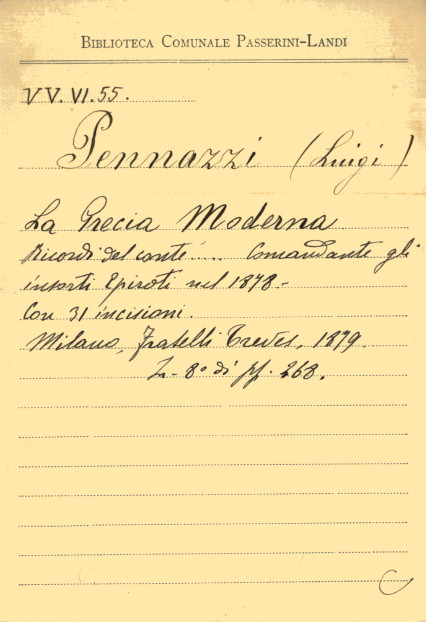 BIBLIOTECA COMUNALE PASSERINI-LANDI
VV. VI. 55.
Pennazzi (Luigi)
La Grecia Moderna
Ricordi del conte ..... Comandante gli
insorti Epiroti nel 1878 -
Con 31 incisioni.
Milano, Fratelli Treves, 1879.
In - 8° di pp. 268.